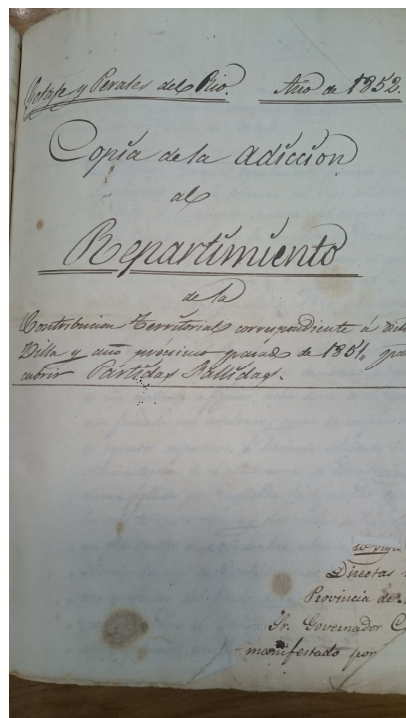 Getafe y Perales del Rio. Año de 1852.
Copia de la adiccion
al
Repartimiento
de la
Contribucion Territorial correspondiente á dich
Villa y año procsimo pasado de 1851, pa
cubrir Partidas Fallidas.
Directas
Provincia de
Sr. Governador C
manifestado por